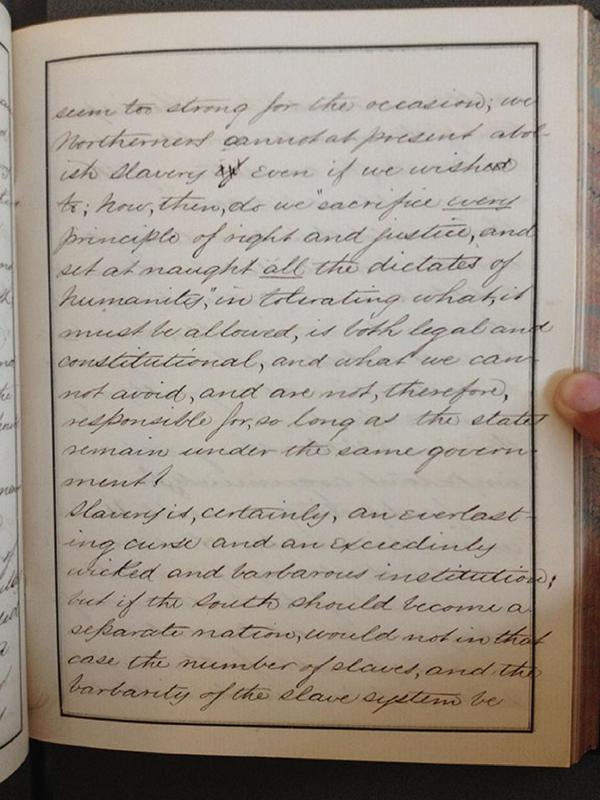 seem too strong for the occasion; we
Northerners cannot at present abol-
ish slavery even if we wished
to; how, then, do we "sacrifice every
principle of right and justice, and
set at naught all the dictates of
humanity", in tolerating what, it
must be allowed, is both legal and
constitutional, and what we can-
not avoid, and are not, therefore,
responsible for, so long as the states
remain under the same govern-
ment?
Slavery is, certainly, an everlast-
ing curse and an exceedinly
wicked and barbarous institution;
but if the South should become a
separate nation, would not in that
case the number of slaves, and the
barbarity of the slave system be